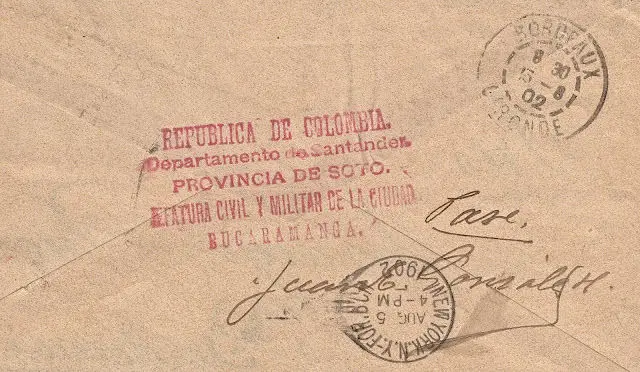 BORDEAUX
8 30
15 - 8
02
GIRONDE
REPUBLICA DE COLOMBIA.
Departamento de Santander.
PROVINCIA DE SOTO.
JEFATURA CIVIL Y MILITAR DE LA CIUDAD
BUCARAMANGA.
Pase.
Juan C. González H.
NEW YORK, N.Y.-FOR.
AUG 5
4-PM
1902